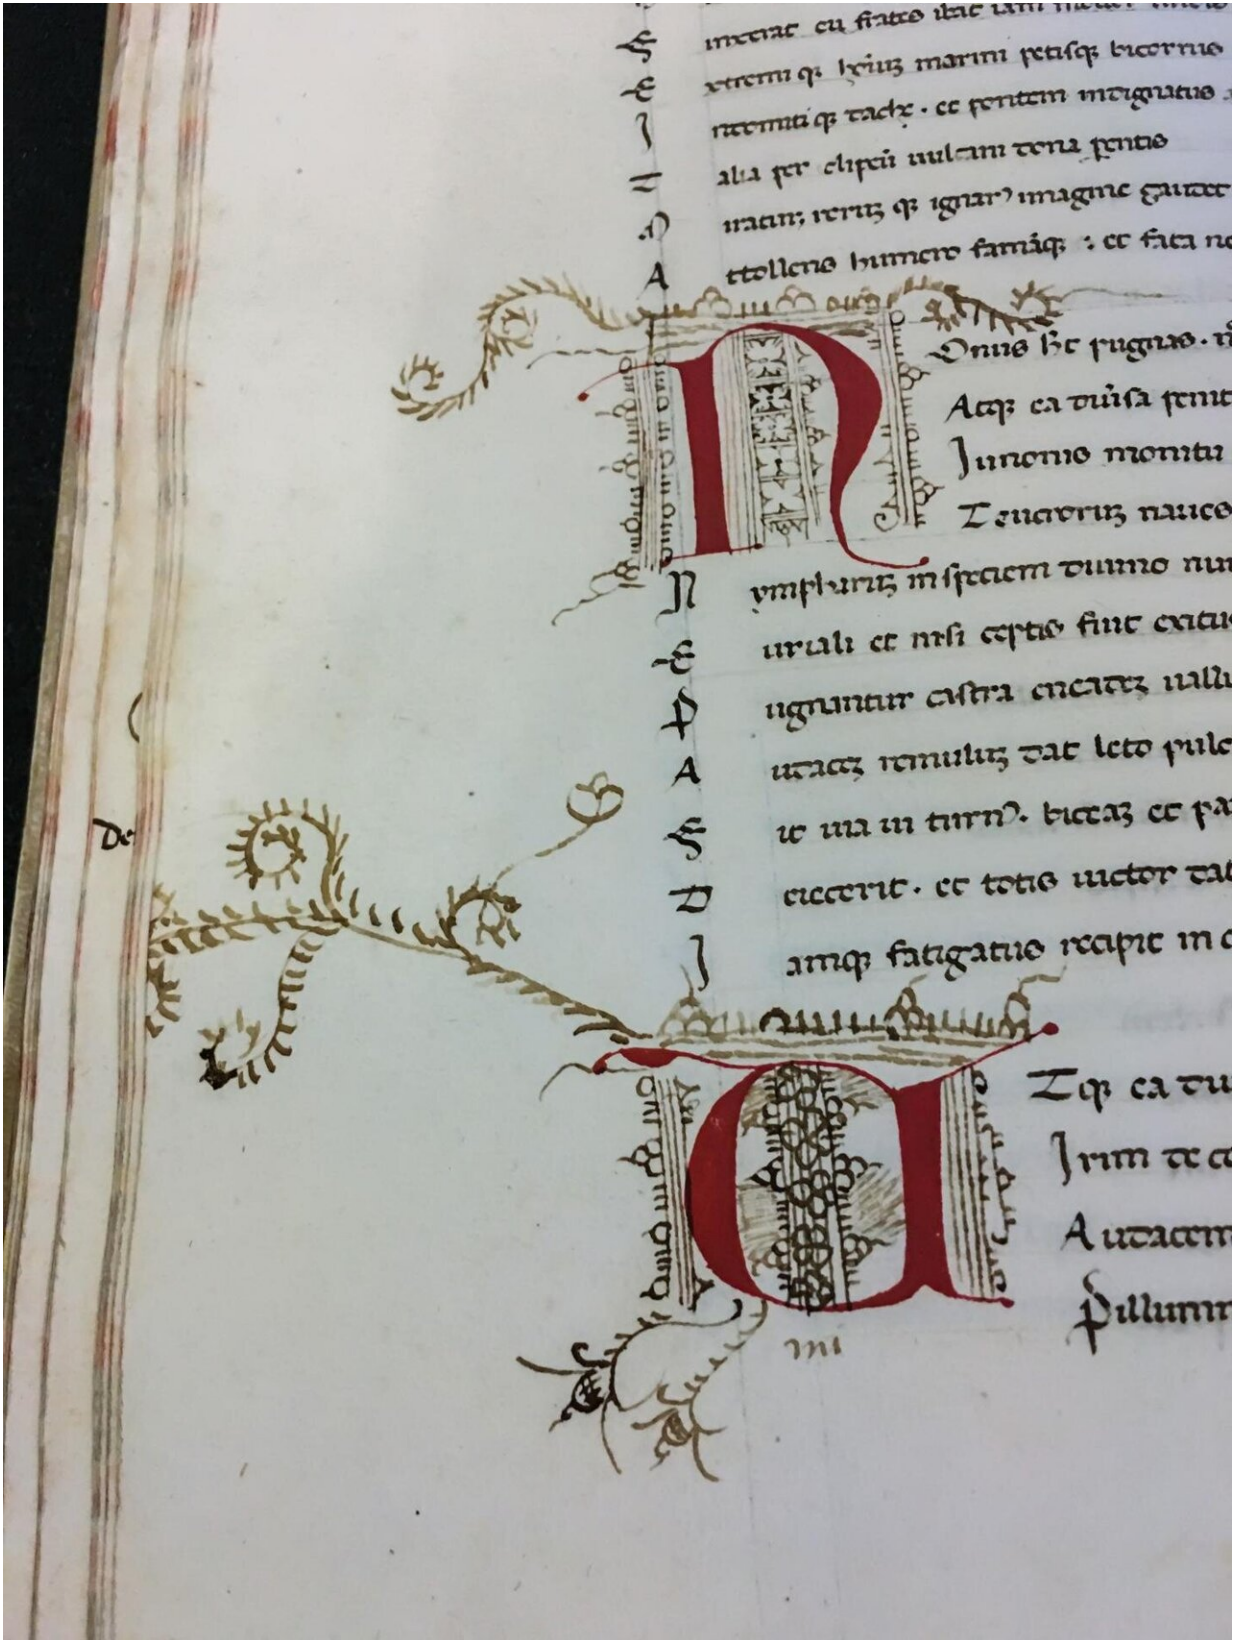 S incerat cū fratre
E xtremiqꝫ hoīuꝫ marini rhenisqꝫ bicornis
I ndomitiqꝫ dache . et pontem indignatus
T alia per clipeū uulcani dona pentis
M iratur, rerūqꝫ ignarꝰ imagine gaudet
A ttollens humero famāqꝫ : et fata ne
N Onus hec pugnas .
Atqꝫ ea diuīsa penit
Iunonis monitu
Teucroruꝫ naues
N ympharuꝫ in speciem diuino nu
E uriali et nisi ceptis fuit exitu
P ugnantur castra eneadeꝫ uallu
A udaceꝫ remuluꝫ dat leto pulc
S ic uia in turnꝰ . biceaꝫ et pa
D eiecerit . et totis uictor dat
I amqꝫ fatigatus recipit in c
De
A Tqꝫ ea du
Irim de ce
Audacem
Pillumn